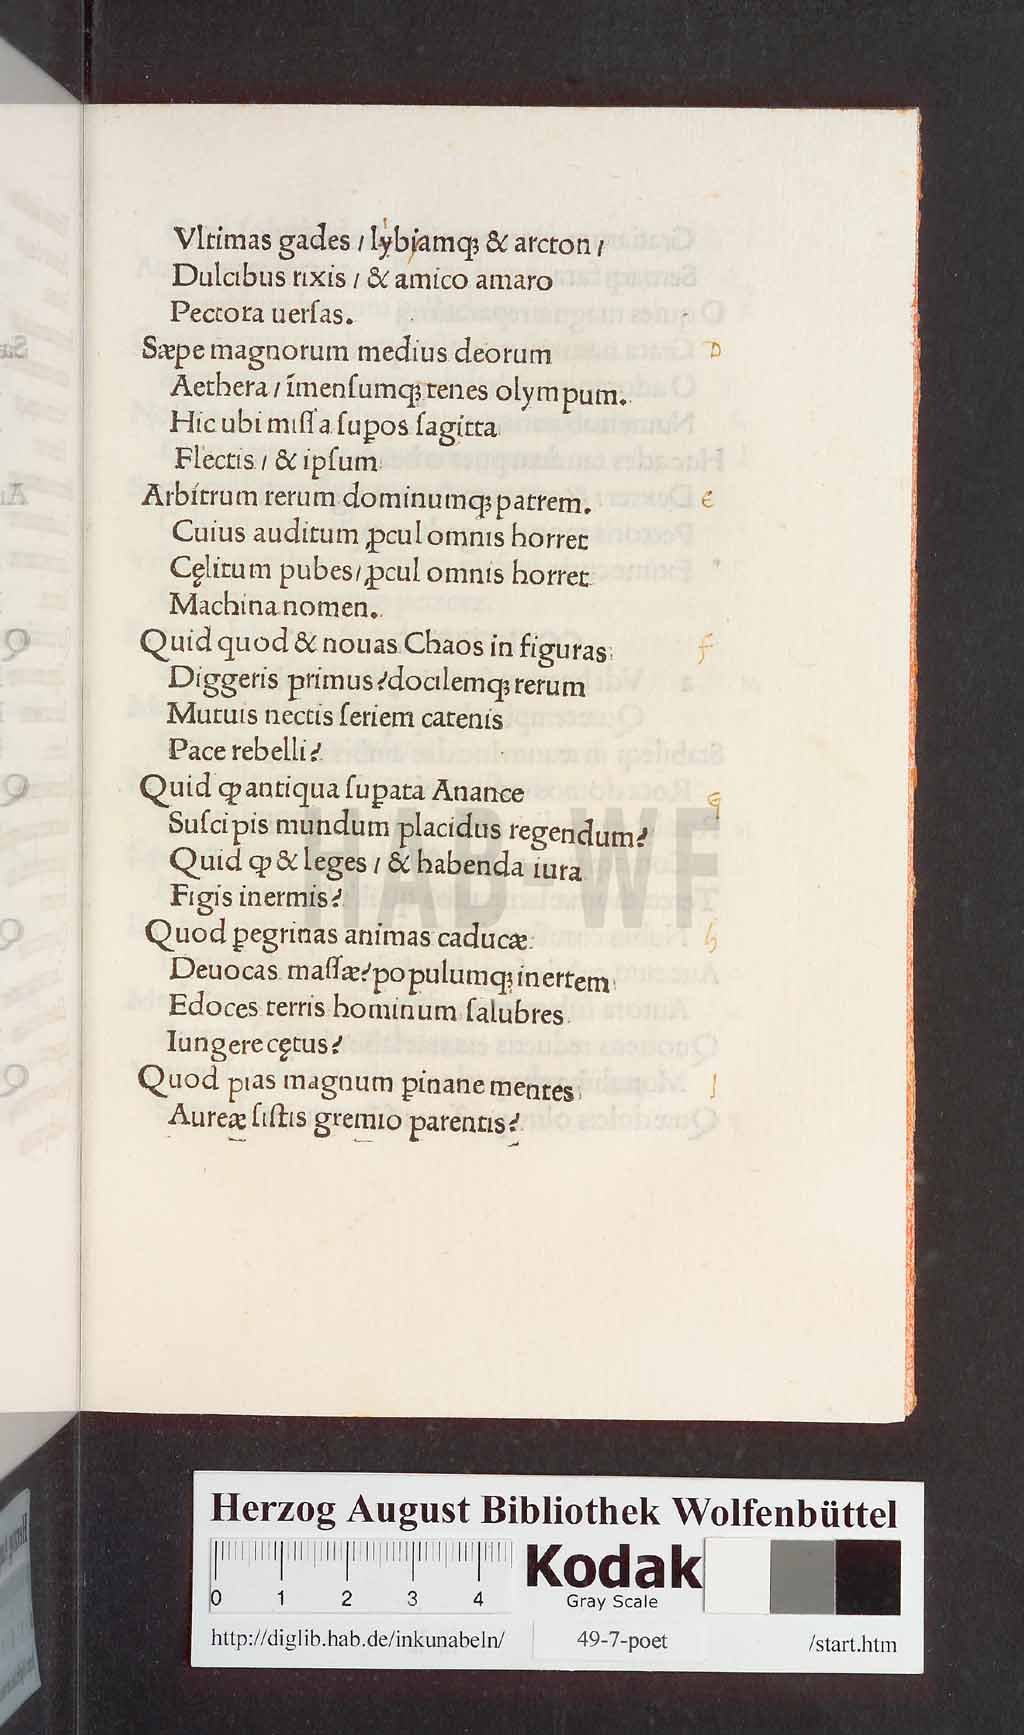 Vltimas gades / lybiamqꝫ & arcton /
Dulcibus rixis / & amico amaro
Pectora uerſas.
Sæpe magnorum medius deorum
D
Aethera / īmenſumqꝫ tenes olympum.
Hic ubi miſſa ſuꝑos ſagitta
Flectis / & ipſum
Arbitrum rerum dominumqꝫ patrem.
e
Cuius auditum ꝓcul omnis horret
Cęlitum pubes / ꝓcul omnis horret
Machina nomen.
Quid quod & nouas Chaos in figuras
f
Diggeris primus? docilemqꝫ rerum
Mutuis nectis ſeriem catenis
Pace rebelli?
Quid ꝙ antiqua ſuꝑata Anance
g
Suſcipis mundum placidus regendum?
Quid ꝙ & leges / & habenda iura
Figis inermis?
Quod ꝑegrinas animas caducæ
h
Deuocas maſſæ? populumqꝫ inertem
Edoces terris hominum ſalubres
Iungere cętus?
Quod pias magnum ꝑ inane mentes
I
Aureæ ſiſtis gremio parentis?
HAB-WF
Herzog August Bibliothek Wolfenbüttel
0 1 2 3 4
Kodak
Gray Scale
http://diglib.hab.de/inkunabeln/ 49-7-poet /start.htm